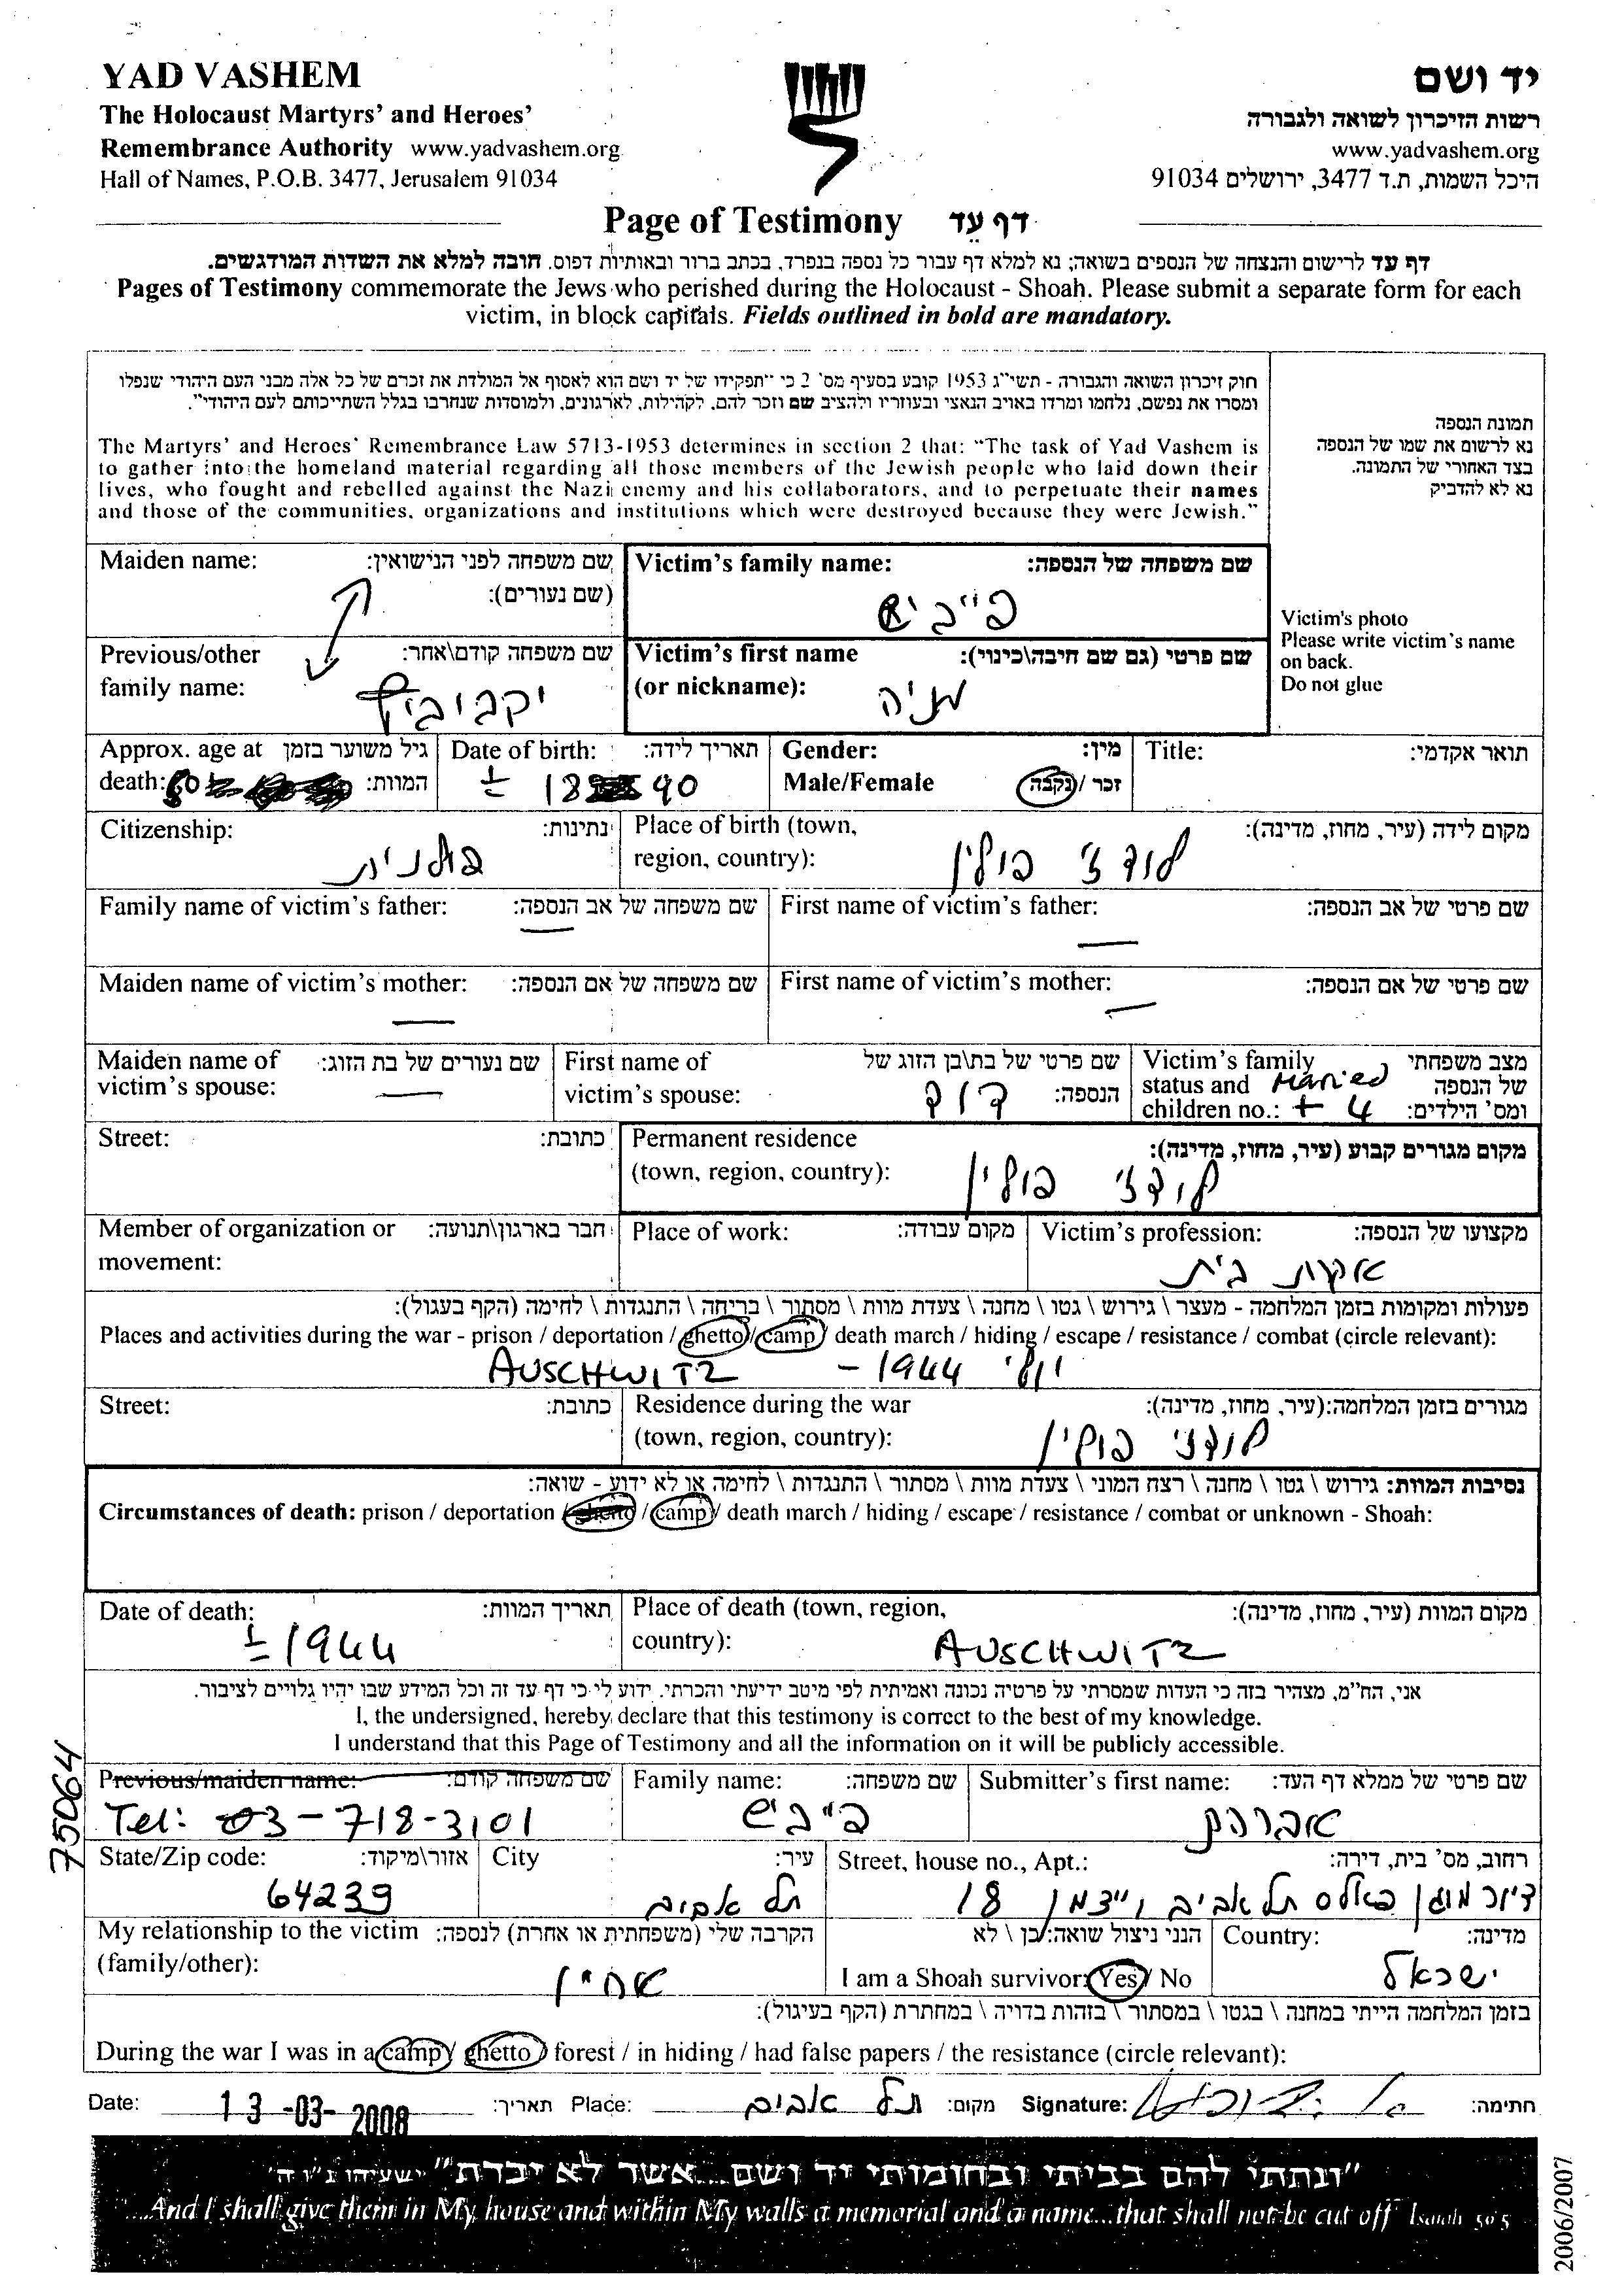 YAD VASHEM
יד ושם
The Holocaust Martyrs' and Heroes'
רשות הזיכרון לשואה ולגבורה
Remembrance Authority www.yadvashem.org
www.yadvashem.org
Hall of Names, P.O.B. 3477, Jerusalem 91034
היכל השמות, ת.ד 3477, ירושלים 91034
Page of Testimony דף עֵד
דף עד לרישום והנצחה של הנספים בשואה; נא למלא דף עבור כל נספה בנפרד, בכתב ברור ובאותיות דפוס. חובה למלא את השדות המודגשים.
Pages of Testimony commemorate the Jews who perished during the Holocaust - Shoah. Please submit a separate form for each
victim, in block capitals. Fields outlined in bold are mandatory.
חוק זיכרון השואה והגבורה - תשי"ג 1953 קובע בסעיף מס' 2 כי "תפקידו של יד ושם הוא לאסוף אל המולדת את זכרם של כל אלה מבני העם היהודי שנפלו
ומסרו את נפשם, נלחמו ומרדו באויב הנאצי ובעוזריו ולהציב שם וזכר להם, לקהילות, לארגונים, ולמוסדות שנחרבו בגלל השתייכותם לעם היהודי".
The Martyrs' and Heroes' Remembrance Law 5713-1953 determines in section 2 that: "The task of Yad Vashem is
to gather into the homeland material regarding all those members of the Jewish people who laid down their
lives, who fought and rebelled against the Nazi enemy and his collaborators, and to perpetuate their names
and those of the communities, organizations and institutions which were destroyed because they were Jewish."
תמונת הנספה
נא לרשום את שמו של הנספה
בצד האחורי של התמונה.
נא לא להדביק
Victim's photo
Please write victim's name
on back.
Do not glue
Maiden name: שם משפחה לפני הנישואין:
(שם נעורים):
Victim's family name: שם משפחה של הנספה:
פייביש
Previous/other שם משפחה קודם\אחר:
family name:
יקבוביץ
Victim's first name שם פרטי (גם שם חיבה\כינוי):
(or nickname):
מניה
Approx. age at גיל משוער בזמן
death: המוות:
Date of birth: תאריך לידה:
± 18 90
Gender: מין:
Male/Female זכר / נקבה
Title: תואר אקדמי:
Citizenship: נתינות:
פולנית
Place of birth (town, מקום לידה (עיר, מחוז, מדינה):
region, country):
לודז' פולין
Family name of victim's father: שם משפחה של אב הנספה:
—
First name of victim's father: שם פרטי של אב הנספה:
—
Maiden name of victim's mother: שם משפחה של אם הנספה:
—
First name of victim's mother: שם פרטי של אם הנספה:
—
Maiden name of שם נעורים של בת הזוג:
victim's spouse: —
First name of שם פרטי של בת\בן הזוג של
victim's spouse: הנספה:
דוד
Victim's family מצב משפחתי
status and Married של הנספה
children no.: + 4 ומס' הילדים:
Street: כתובת:
Permanent residence מקום מגורים קבוע (עיר, מחוז, מדינה):
(town, region, country):
לודז' פולין
Member of organization or חבר בארגון\תנועה:
movement:
Place of work: מקום עבודה:
Victim's profession: מקצועו של הנספה:
עקרת בית
פעולות ומקומות בזמן המלחמה - מעצר \ גירוש \ גטו \ מחנה \ צעדת מוות \ מסתור \ בריחה \ התנגדות \ לחימה (הקף בעגול):
Places and activities during the war - prison / deportation / ghetto / camp / death march / hiding / escape / resistance / combat (circle relevant):
AUSCHWITZ - 1944 יולי
Street: כתובת:
Residence during the war מגורים בזמן המלחמה:(עיר, מחוז, מדינה):
(town, region, country):
לודז' פולין
נסיבות המוות: גירוש \ גטו \ מחנה \ רצח המוני \ צעדת מוות \ מסתור \ התנגדות \ לחימה או לא ידוע - שואה:
Circumstances of death: prison / deportation / ghetto / camp / death march / hiding / escape / resistance / combat or unknown - Shoah:
Date of death: תאריך המוות:
± 1944
Place of death (town, region, מקום המוות (עיר, מחוז, מדינה):
country):
AUSCHWITZ
אני, הח"מ, מצהיר בזה כי העדות שמסרתי על פרטיה נכונה ואמיתית לפי מיטב ידיעתי והכרתי. ידוע לי כי דף עד זה וכל המידע שבו יהיו גלויים לציבור.
I, the undersigned, hereby declare that this testimony is correct to the best of my knowledge.
I understand that this Page of Testimony and all the information on it will be publicly accessible.
Previous/maiden name: שם משפחה קודם:
Tel: 03-718-3101
Family name: שם משפחה:
פייביש
Submitter's first name: שם פרטי של ממלא דף העד:
אברהם
State/Zip code: אזור\מיקוד:
64239
City עיר:
תל אביב
Street, house no., Apt.: רחוב, מס' בית, דירה:
דיור מוגן פאלס תל אביב ויצמן 18
My relationship to the victim הקרבה שלי (משפחתית או אחרת) לנספה:
(family/other):
אחיין
הנני ניצול שואה: כן \ לא
I am a Shoah survivor: Yes / No
Country: מדינה:
ישראל
בזמן המלחמה הייתי במחנה \ בגטו \ במסתור \ בזהות בדויה \ במחתרת (הקף בעיגול):
During the war I was in a camp / ghetto / forest / in hiding / had false papers / the resistance (circle relevant):
Date: 13-03-2008 תאריך: Place: תל אביב מקום: Signature: חתימה:
"ונתתי להם בביתי ובחומותי יד ושם...אשר לא יכרת" ישעיהו נ"ו ה'
...And I shall give them in My house and within My walls a memorial and a name...that shall not be cut off Isaiah 56:5
75064
2006/2007